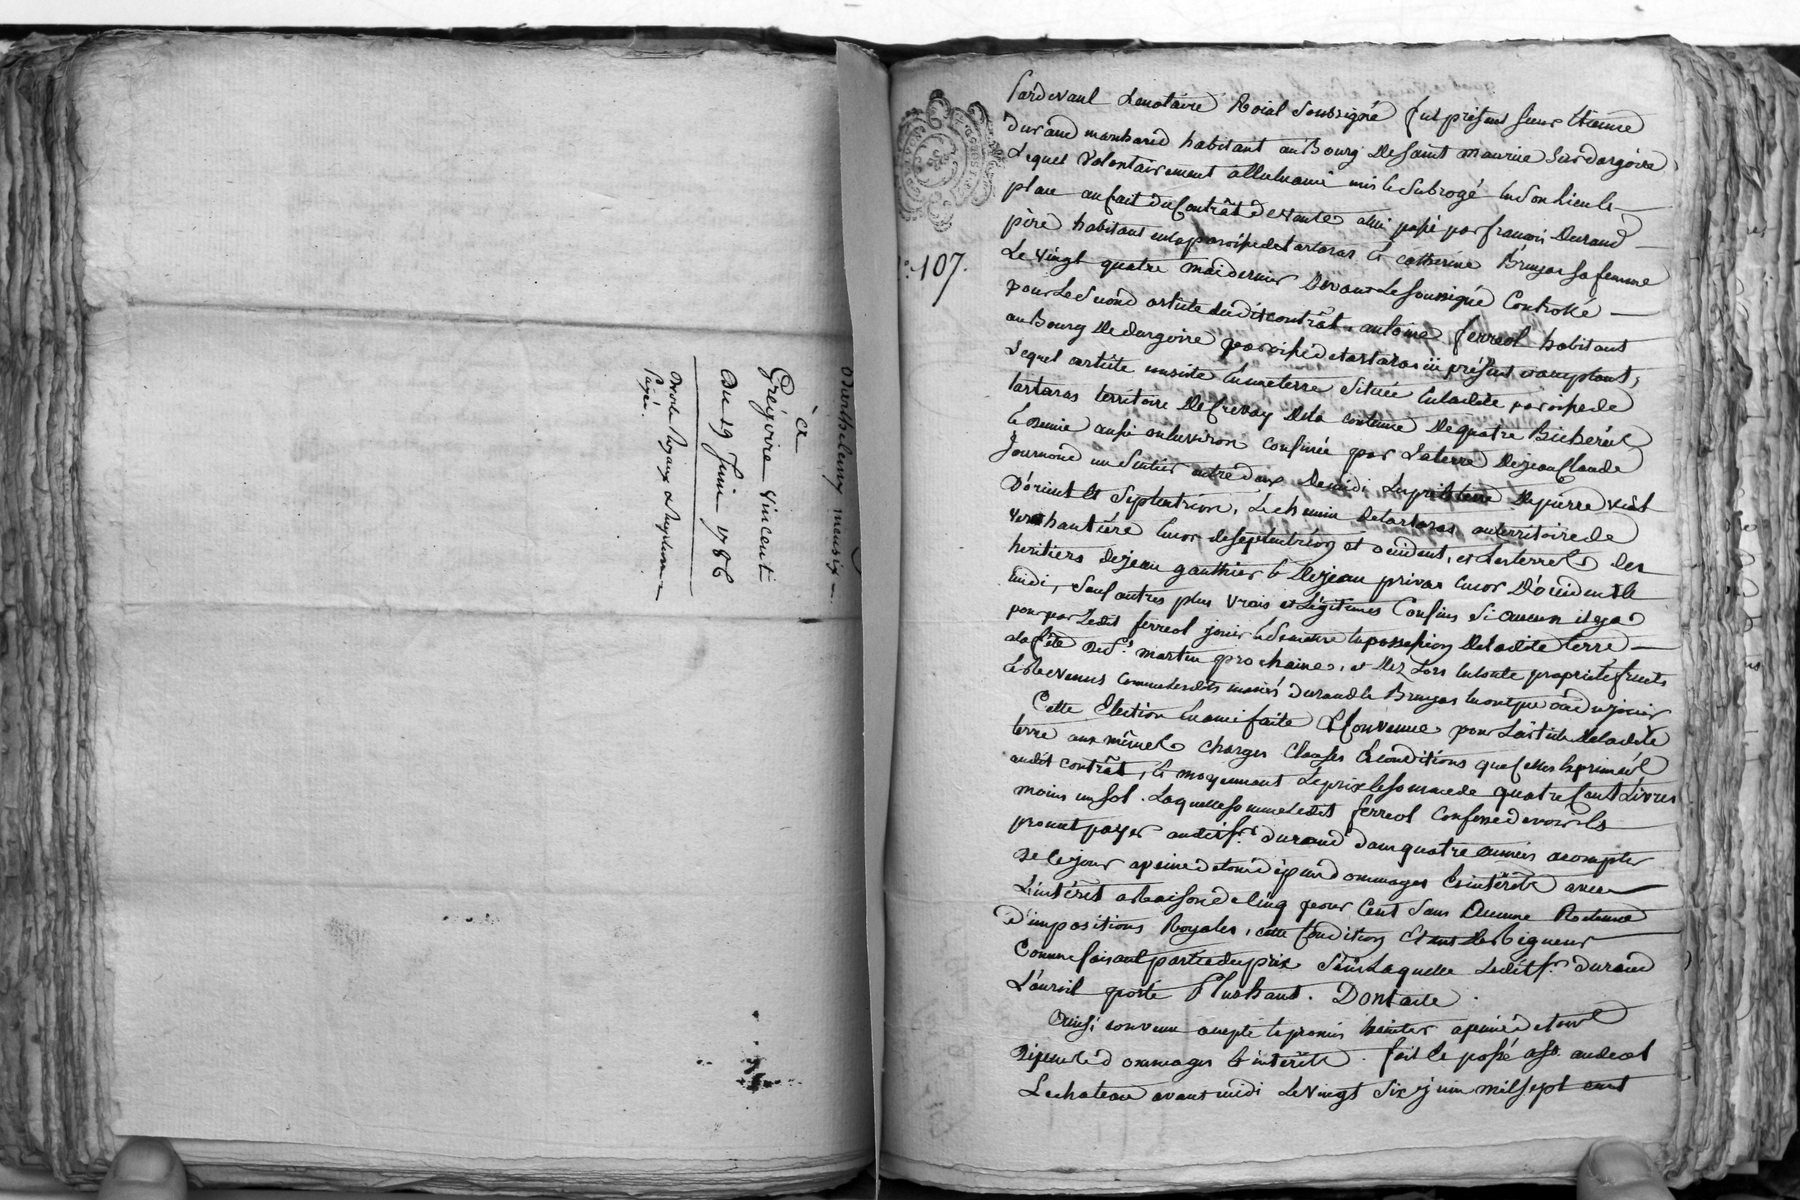 Barthelemy mensix
à
Grégoire Vincent
Du 29 Juin 1786
Droits Royaux
Payé.
107.
Pardevant Lenotaire Roial soussigné fut présent sieur Etienne
Durand marchand habitant au Bourg de saint maurice sur dargoire,
Lequel volontairement a élu en ami mis & subrogé en son lieu &
place au fait du Contrât de vante a lui passé par francois Durand
père habitant en la paroisse de tartaras & catherine Bruyas sa femme
Le vingt quatre mai dernier devant Le soussigné Controlé
pour Le second article dudit contrât, antoine ferreol habitant
au Bourg de dargoire paroisse de tartaras ici présent & acceptant,
Lequel article consiste en une terre située en ladite paroisse de
tartaras territoire de Crevay de la contenue de quatre Bicherées
& demie ausi ou environ confinée par La terre de jean Claude
Journoud un sentier entre deux de midi, La terre de pierre viàl
D'orient & septentrion, Le chemin de tartaras au territoire de
Verchantiére encor de septentrion et occident, et les terres des
heritiers de jean gauthier & de jean privas encor D'occident &
midi, sauf autres plus vrais et Légitimes Confins si aucun il y a
pour par Ledit ferreol jouir & se mettre en possession de ladite terre
a la fête de St. martin prochaine, et dez Lors en toute proprieté fruits
& Revenus comme lesdits mariés durand & Bruyas en ont pu ou dû jouir
Cette Election en ami faite & Convenue pour L'article de ladite
terre aux mêmes charges clauses & conditions que celles exprimées
audit contrât, & moyennant Le prix & somme de quatre Cent Livres
moins un sol. Laquelle somme Ledit ferreol Confesse devoir &
promet payer audit sr. durand dans quatre années a compter
de ce jour a peine de tous dépens dommages & intérêts avec
L'intérêt a Raison de Cinq pour Cent sans Aucune Retenue
D'impositions Royales, cette Condition Etant de Rigueur
Comme faisant partie du prix sans Laquelle Ledit sr. durand
L'auroit porté Plus haut. Dont acte.
Ainsi convenu accepté & promis tenir a peine de tous
dépens & dommages & intérêts. fait & passé a st. andeol
Le chateau avant midi Le vingt six juin mil sept cent